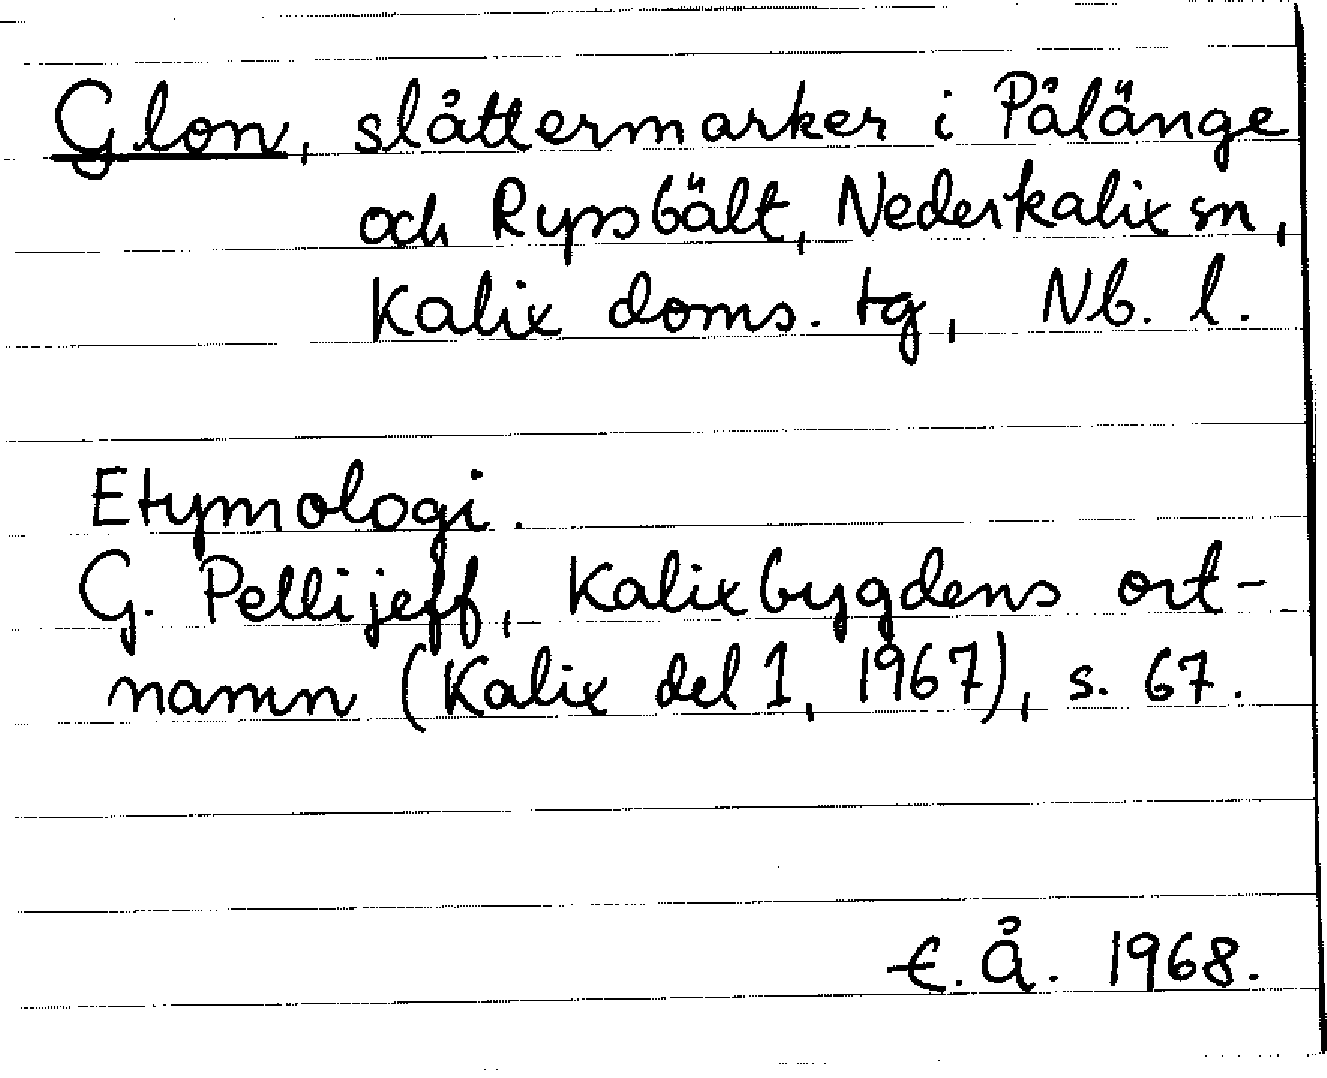 Glon, slåttermarker i Pålänge
och Ryssbält, Nederkalix sn,
Kalix doms. tg, Nb. l.
Etymologi.
G. Pellijeff, Kalixbygdens ort-
namn (Kalix del 1, 1967), s. 67.
E. Å. 1968.